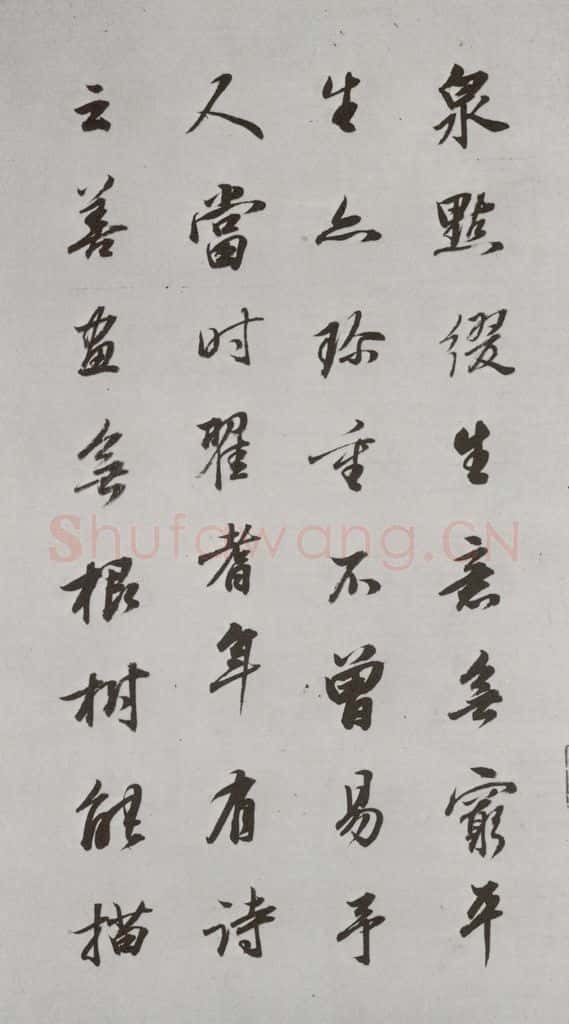 泉點綴生意無窮平
生亦珍重不曾易予
人當时翟耆年有詩
云善畫無根樹能描
Shufawang.CN